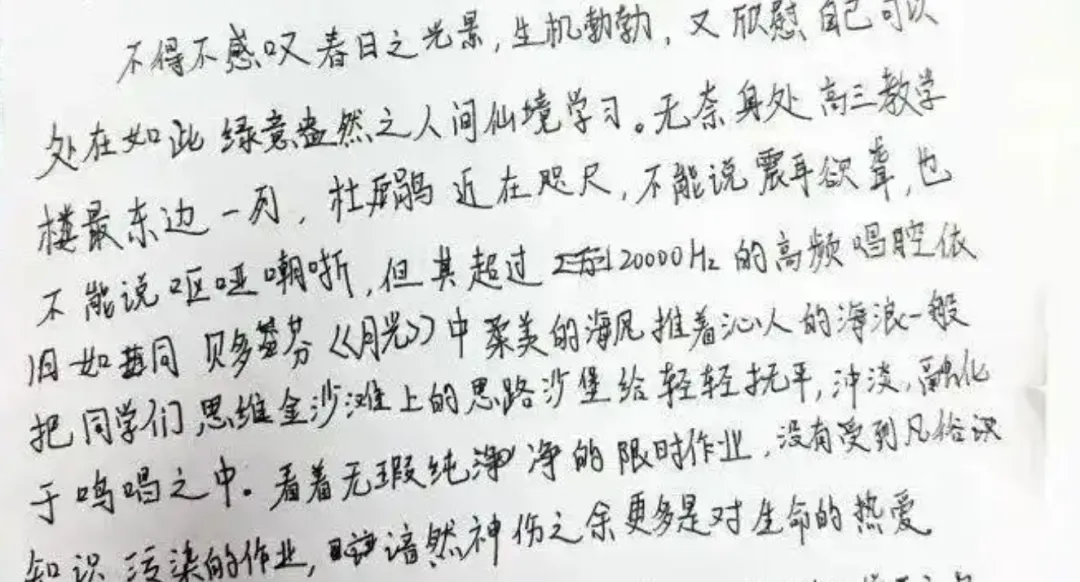 不得不感叹春日之光景,生机勃勃,又欣慰自己可以
处在如此绿意盎然之人间仙境学习。无奈身处高三教学
楼最东边一列,杜鹃近在咫尺,不能说震耳欲聋,也
不能说呕哑嘲哳,但其超过20000Hz的高频唱腔依
旧如同贝多芬《月光》中柔美的海风推着沁人的海浪一般
把同学们思维金沙滩上的思路沙堡给轻轻抚平,冲淡,融化
于鸣唱之中。看着无瑕纯净的限时作业,没有受到凡俗识
知识污染的作业,谙然神伤之余更多是对生命的热爱